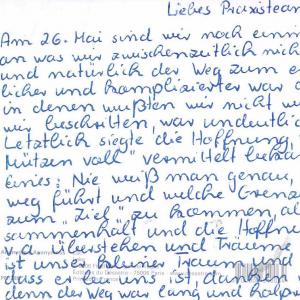 Liebes Praxisteam
Am 26. Mai sind wir noch einm
an was wir zwischenzeitlich nich
und natürlich der Weg zum e
licher und komplizierter war a
in denen wußten wir nicht w
wir beschritten, war undeutlic
Letztlich siegte die Hoffnung,
Mützen voll" vermittelt beka
eines: Nie weiß man genau,
weg führt und welche Grenze
zum "Ziel" zu kommen, al
sammenhält und die Hoffnu
v.a. überstehen und Träume
ist unser kleiner Traum und
dass er bei uns ist, danken
denn der Weg war lang und